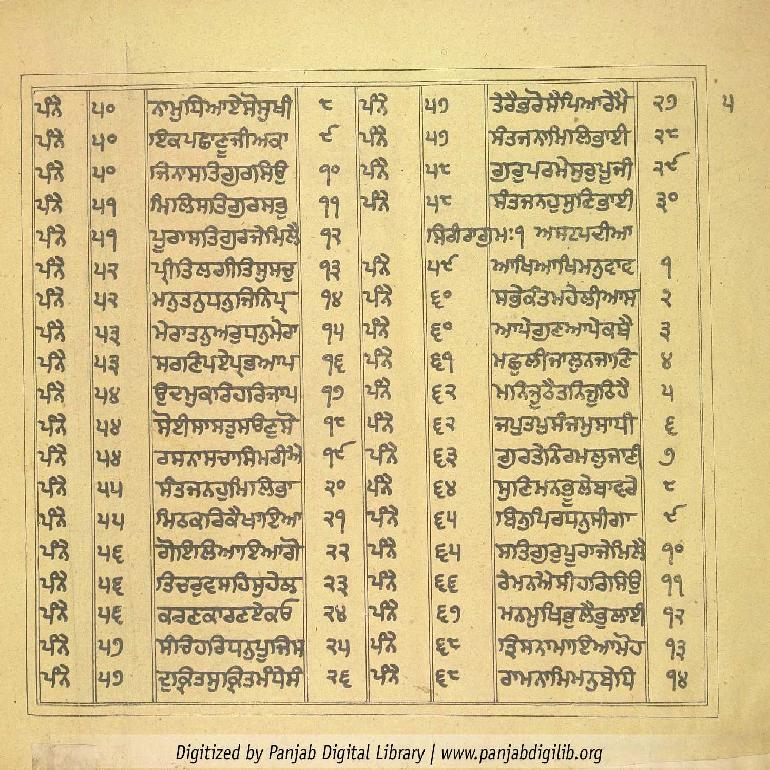 ਪੰਨੇ ੫੦ ਨਾਮੁਧਿਆਏਸੋਸੁਖੀ ੮ ਪੰਨੇ ੫੭ ਤੇਰੈਭਰੋਸੈਪਿਆਰੇਮੈ ੨੭ ੫
ਪੰਨੇ ੫੦ ਇਕਪਛਾਣੂਜੀਅਕਾ ੯ ਪੰਨੇ ੫੭ ਸੰਤਜਨਾਮਿਲਿਭਾਈ ੨੮
ਪੰਨੇ ੫੦ ਜਿਨਾਸਤਿਗੁਰਸਿਉ ੧੦ ਪੰਨੇ ੫੮ ਗੁਰੁਪਰਮੇਸੁਰੁਪੂਜੀ ੨੯
ਪੰਨੇ ੫੧ ਮਿਲਿਸਤਿਗੁਰਸਭੁ ੧੧ ਪੰਨੇ ੫੮ ਸੰਤਜਨਹੁਸੁਣਿਭਾਈ ੩੦
ਪੰਨੇ ੫੧ ਪੂਰਾਸਤਿਗੁਰਜੇਮਿਲੈ ੧੨ ਸਿਰੀਰਾਗੁਮਃ੧ ਅਸਟਪਦੀਆ
ਪੰਨੇ ੫੨ ਪ੍ਰੀਤਿਲਗੀਤਿਸੁਸਚੁ ੧੩ ਪੰਨੇ ੫੯ ਆਖਿਆਖਿਮਨੁਵਾਵ ੧
ਪੰਨੇ ੫੨ ਮਨੁਤਨੁਧਨੁਜਿਨਿਪ੍ਰ ੧੪ ਪੰਨੇ ੬੦ ਸਭੇਕੰਤਮਹੇਲੀਆਸ ੨
ਪੰਨੇ ੫੩ ਮੇਰਾਤਨੁਅਰੁਧਨੁਮੇਰਾ ੧੫ ਪੰਨੇ ੬੦ ਆਪੇਗੁਣਆਪੇਕਥੈ ੩
ਪੰਨੇ ੫੩ ਸਰਣਿਪਏਪ੍ਰਭਆਪ ੧੬ ਪੰਨੇ ੬੧ ਮਛੁਲੀਜਾਲੁਨਜਾਣਿ ੪
ਪੰਨੇ ੫੪ ਉਦਮੁਕਰਿਹਰਿਜਾਪ ੧੭ ਪੰਨੇ ੬੨ ਮਨਿਜੂਠੈਤਨਿਜੂਠਿਹੈ ੫
ਪੰਨੇ ੫੪ ਸੋਈਸਾਸਤੁਸਉਣੁਸੋ ੧੮ ਪੰਨੇ ੬੨ ਜਪੁਤਪੁਸੰਜਮੁਸਾਧੀ ੬
ਪੰਨੇ ੫੪ ਰਸਨਾਸਚਾਸਿਮਰੀਐ ੧੯ ਪੰਨੇ ੬੩ ਗੁਰਤੇਨਿਰਮਲੁਜਾਣੀ ੭
ਪੰਨੇ ੫੫ ਸੰਤਜਨਹੁਮਿਲਿਭਾ ੨੦ ਪੰਨੇ ੬੪ ਸੁਣਿਮਨਭੂਲੇਬਾਵਰੇ ੮
ਪੰਨੇ ੫੫ ਮਿਠਕਰਿਕੈਖਾਇਆ ੨੧ ਪੰਨੇ ੬੫ ਬਿਨੁਪਿਰਧਨੁਸੀਗਾ ੯
ਪੰਨੇ ੫੬ ਗੋਇਲਿਆਇਆਗੋ ੨੨ ਪੰਨੇ ੬੫ ਸਤਿਗੁਰੁਪੂਰਾਜੇਮਿਲੈ ੧੦
ਪੰਨੇ ੫੬ ਤਿਚਰੁਵਸਹਿਸੁਹੇਲ ੨੩ ਪੰਨੇ ੬੬ ਰੇਮਨਐਸੀਹਰਿਸਿਉ ੧੧
ਪੰਨੇ ੫੬ ਕਰਣਕਾਰਣਏਕਓ ੨੪ ਪੰਨੇ ੬੭ ਮਨਮੁਖਿਭੁਲੈਭੁਲਾਈ ੧੨
ਪੰਨੇ ੫੭ ਸੰਚਿਹਰਿਧਨੁਪੂਜਿਸ ੨੫ ਪੰਨੇ ੬੮ ਤ੍ਰਿਸਨਾਮਾਇਆਮੋਹ ੧੩
ਪੰਨੇ ੫੭ ਦੁਕ੍ਰਿਤਸੁਕ੍ਰਿਤਮੰਧੇਸੰ ੨੬ ਪੰਨੇ ੬੮ ਰਾਮਨਾਮਿਮਨੁਬੇਧਿ ੧੪
Digitized by Panjab Digital Library | www.panjabdigilib.org